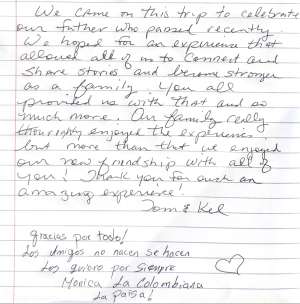 We came on this trip to celebrate
our father who passed recently.
We hoped for an experience that
allowed all of us to connect and
share stories and become stronger
as a family. You all
provided us with that and so
much more. Our family really
thoroughly enjoyed the experience
but more than that we enjoyed
our new friendship with all of
you! Thank you for such an
amazing experience!
Tom & Kel
gracias por todo!
Los amigos no nacen se hacen
Los quiero por siempre
Monica La Colombiana
La paisa!